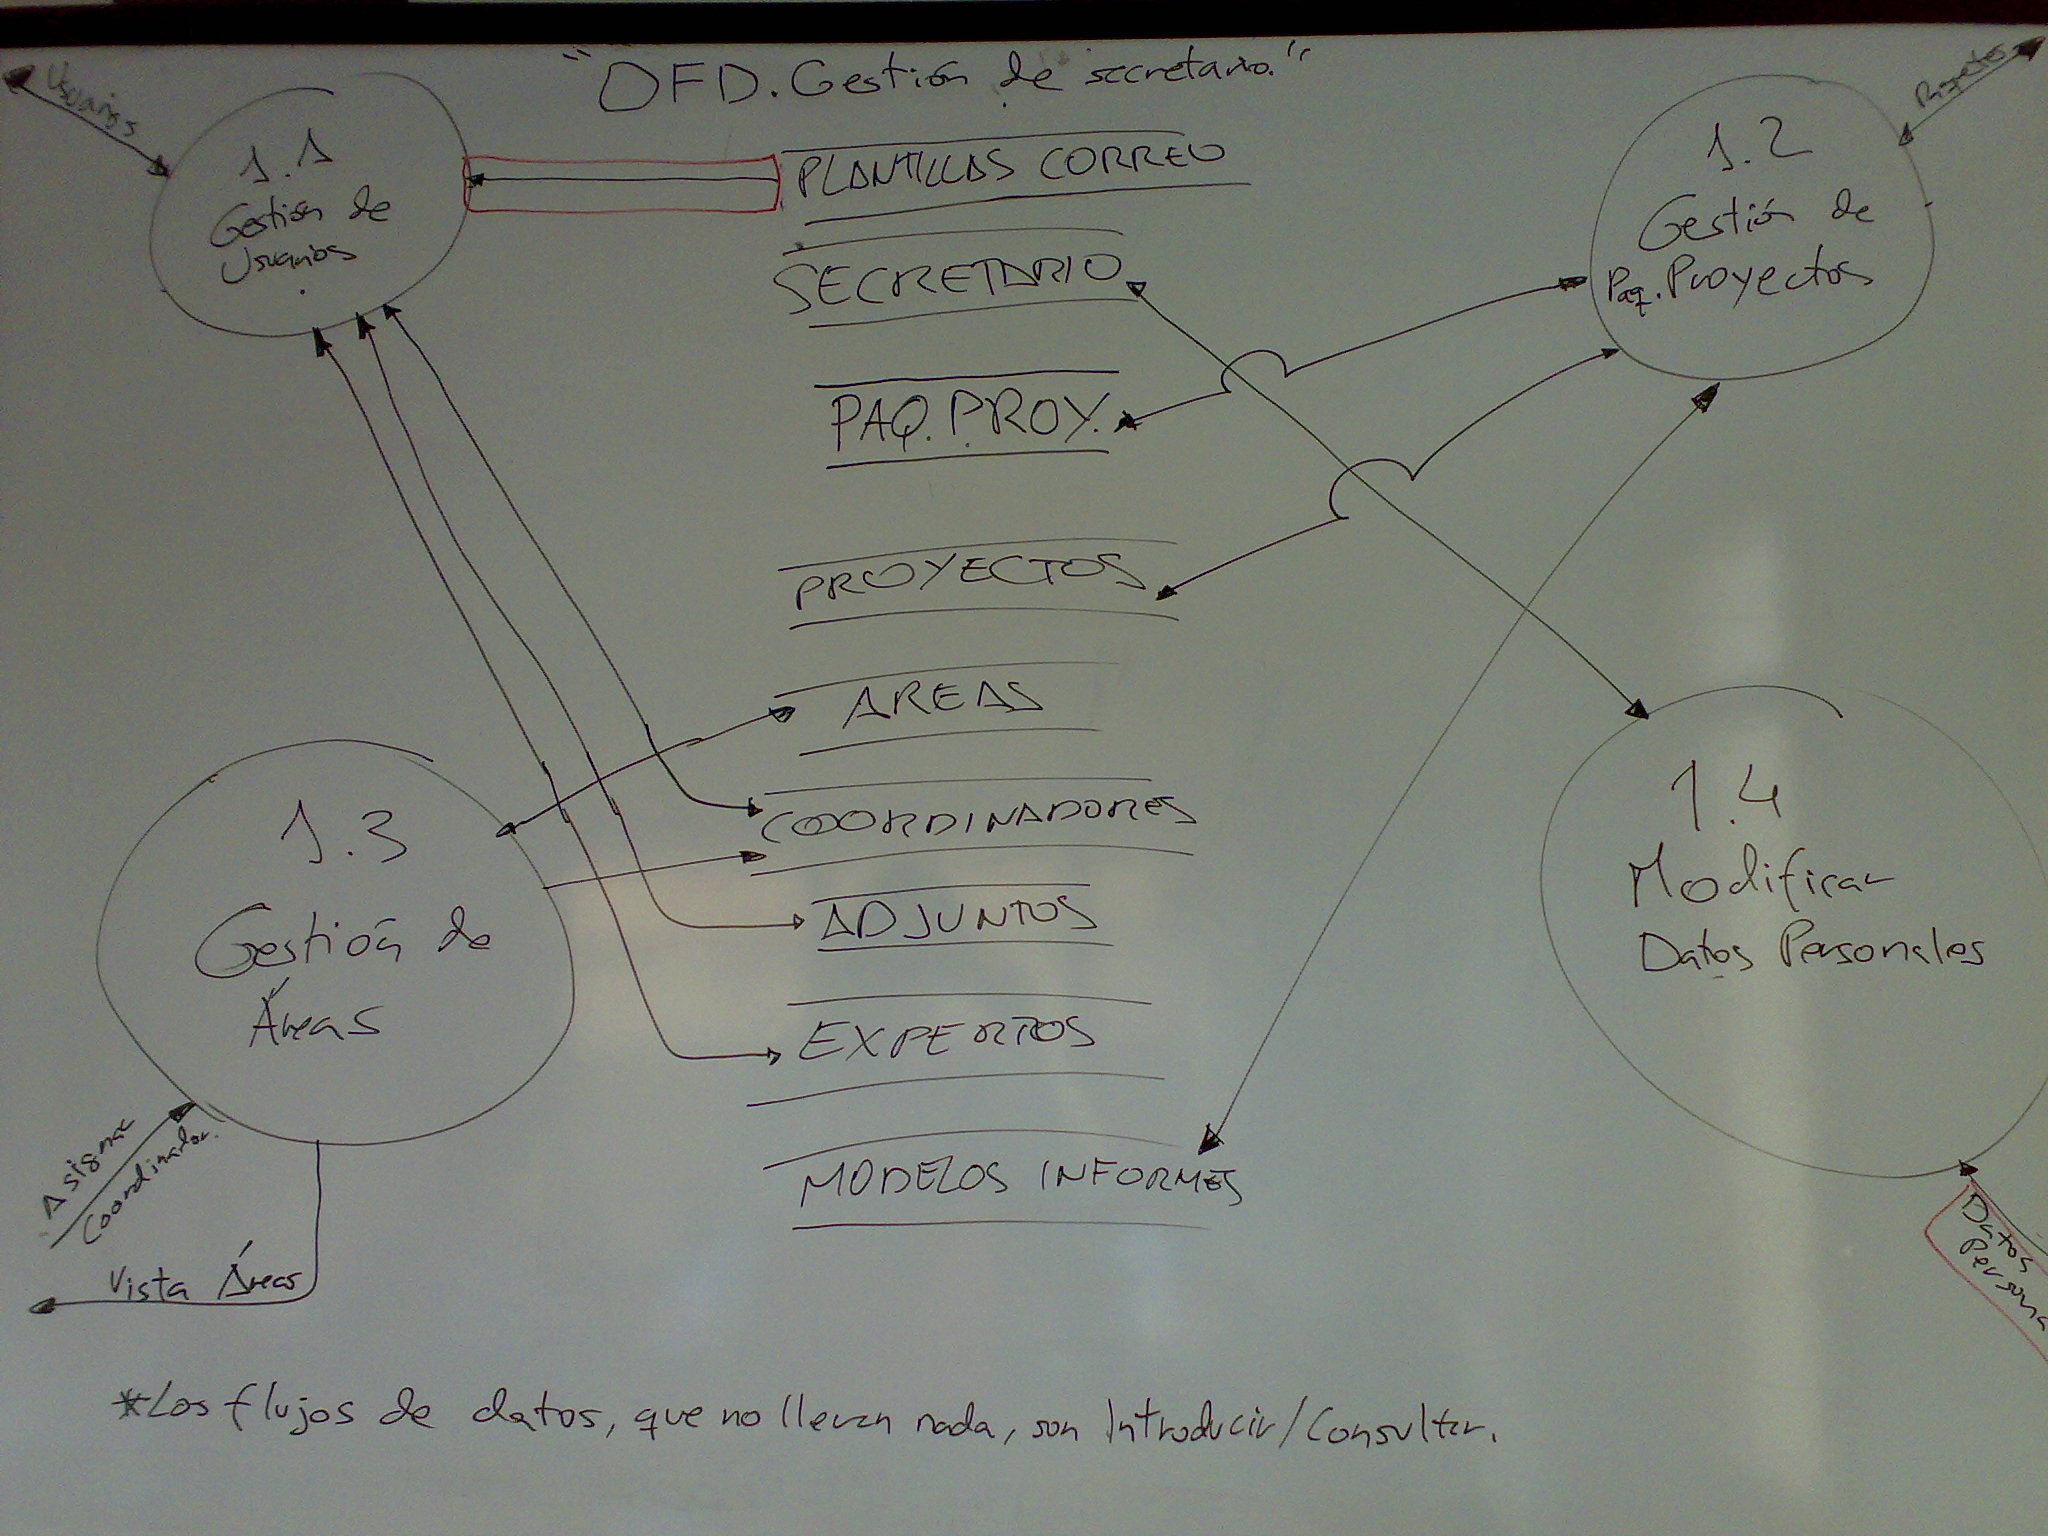 "DFD. Gestión de secretario."
Usuarios
1.1
Gestión de
Usuarios
PLANTILLAS CORREO
SECRETARIO
PAQ. PROY.
PROYECTOS
AREAS
COORDINADORES
ADJUNTOS
EXPERTOS
MODELOS INFORMES
1.2
Gestión de
Paq. Proyectos
1.3
Gestión de
Áreas
Asignar
Coordinador.
Vista Áreas
1.4
Modificar
Datos Personales
Datos
Persona
*Los flujos de datos, que no llevan nada, son Introducir/Consultar.